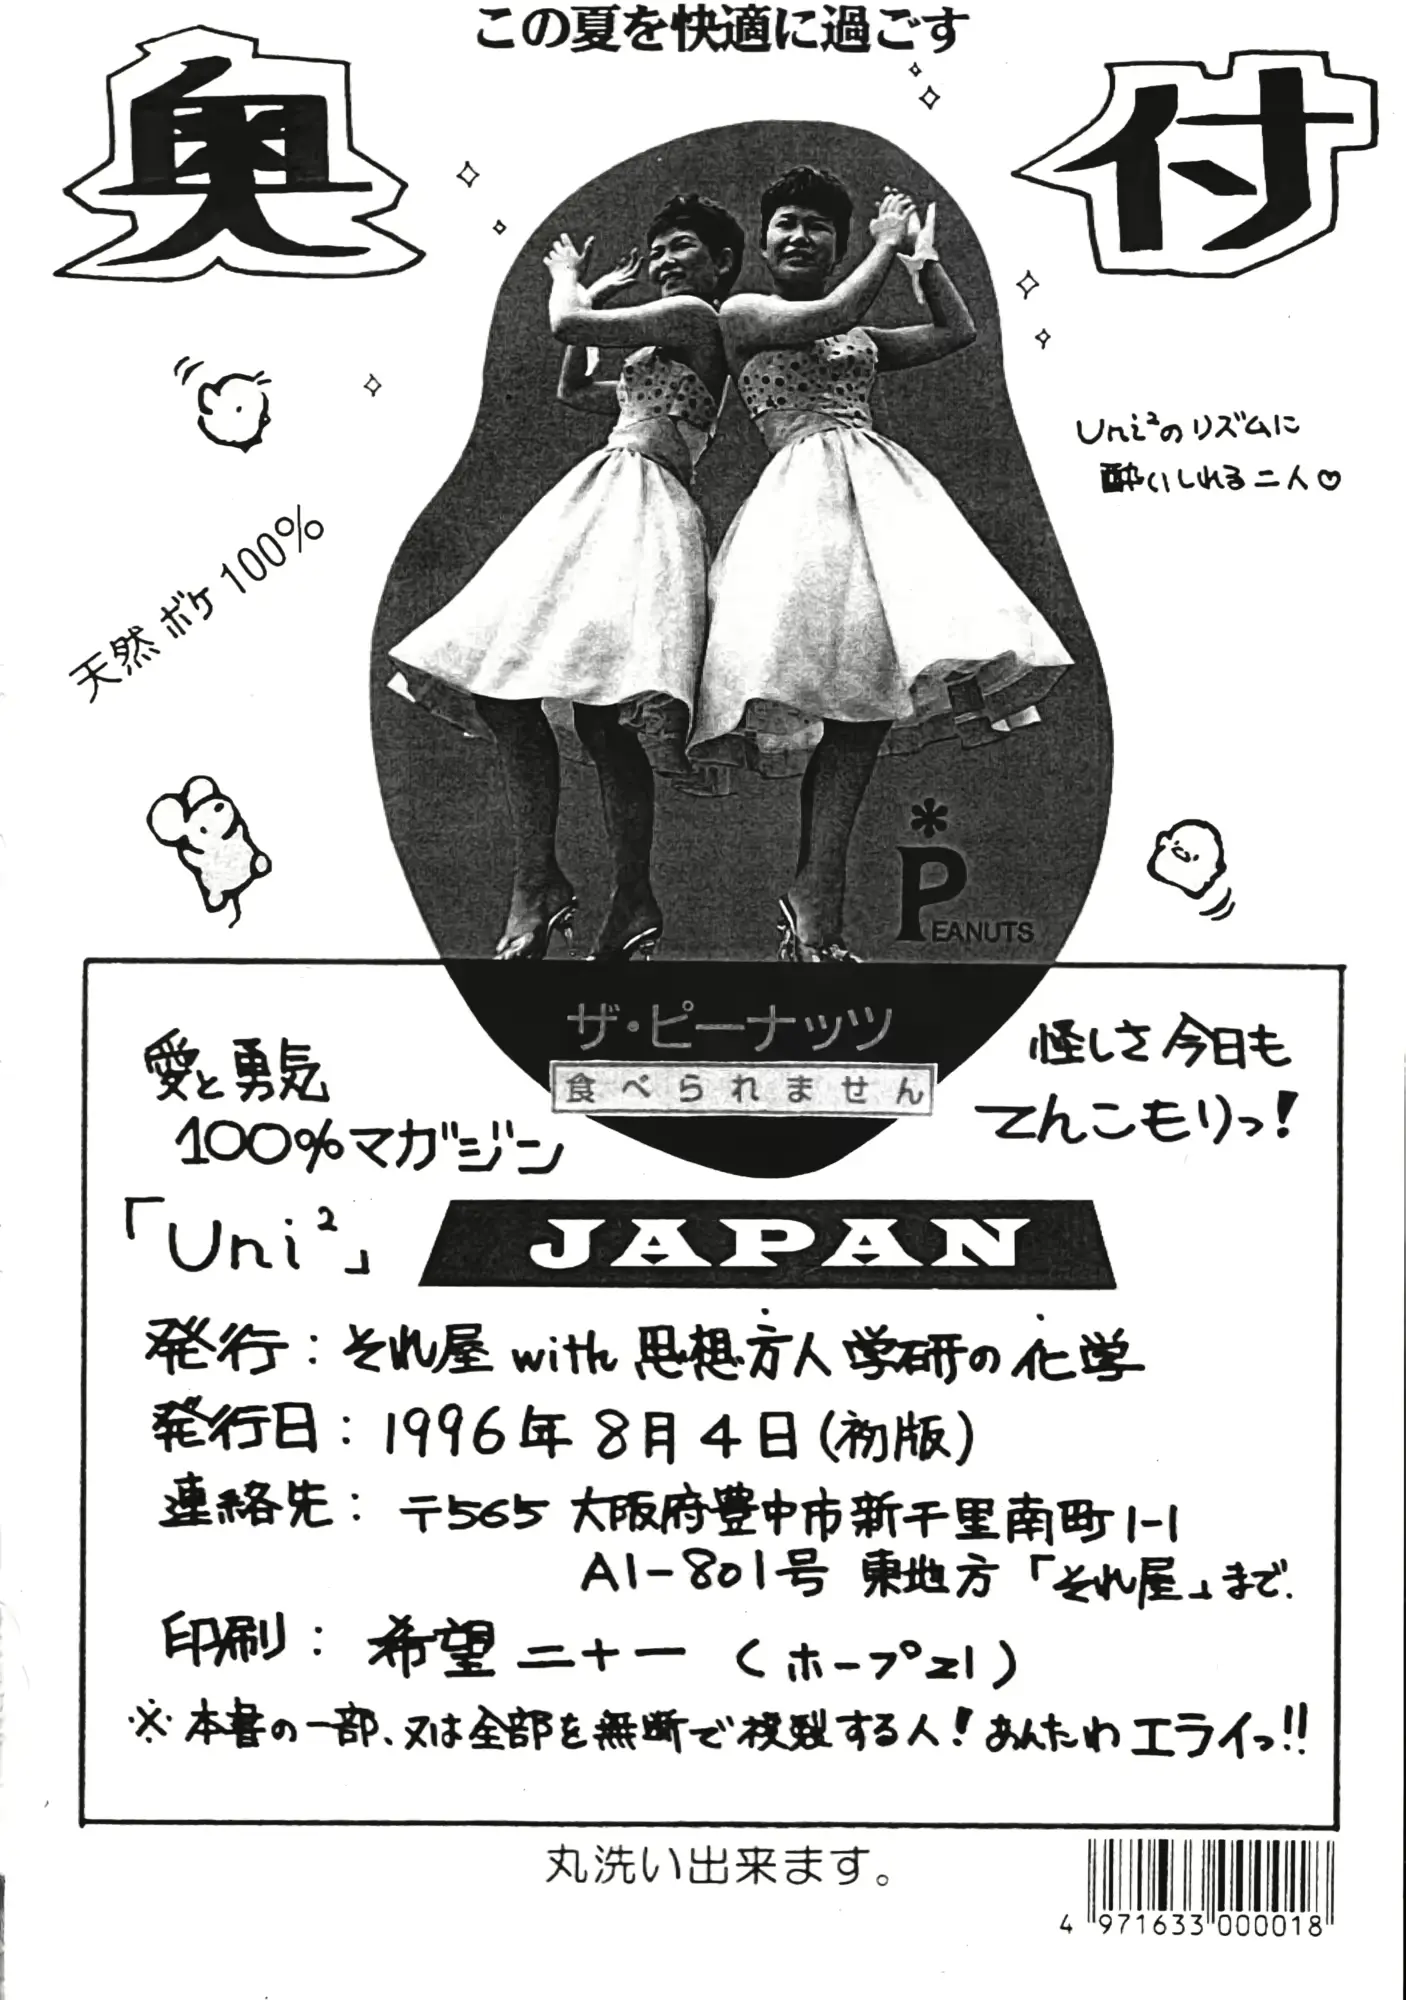 この夏を快適に過ごす
奥付
Uni²のリズムに
酔いしれる二人♡
天然ボケ100%
*
PEANUTS
ザ・ピーナッツ
食べられません
愛と勇気
100%マガジン
「Uni²」
怪しさ今日も
てんこもりっ!
JAPAN
発行:それ屋with思想方人学研の化学
発行日:1996年8月4日(初版)
連絡先:〒565 大阪府豊中市新千里南町1-1
A1-801号 東地方「それ屋」まで.
印刷:希望二十一(ホープ21)
※本書の一部、又は全部を無断で複製する人!あんたわエライっ!!
丸洗い出来ます。
4 971633 000018